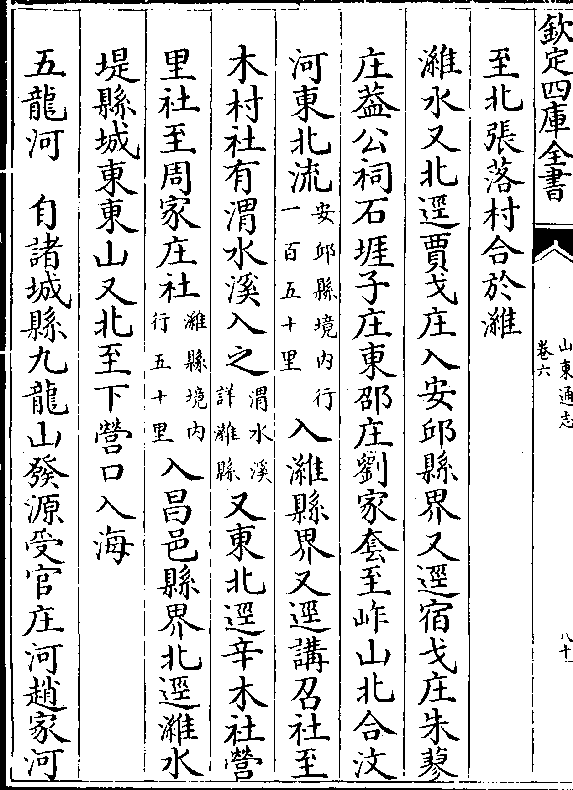 欽定四庫全書
山東通志
卷六
八十一
至北張落村合於濰
濰水又北逕賈戈庄入安邱縣界又逕宿戈庄朱蓼
庄蓋公祠石堐子庄東邵庄劉家套至岞山北合汶
河東北流安邱縣境內行一百五十里入濰縣界又逕講召社至
木村社有渭水溪入之渭水溪詳濰縣又東北逕辛木社營
里社至周家庄社濰縣境內行五十里入昌邑縣界北逕濰水
堤縣城東東山又北至下營口入海
五龍河　自諸城縣九龍山發源受官庄河趙家河